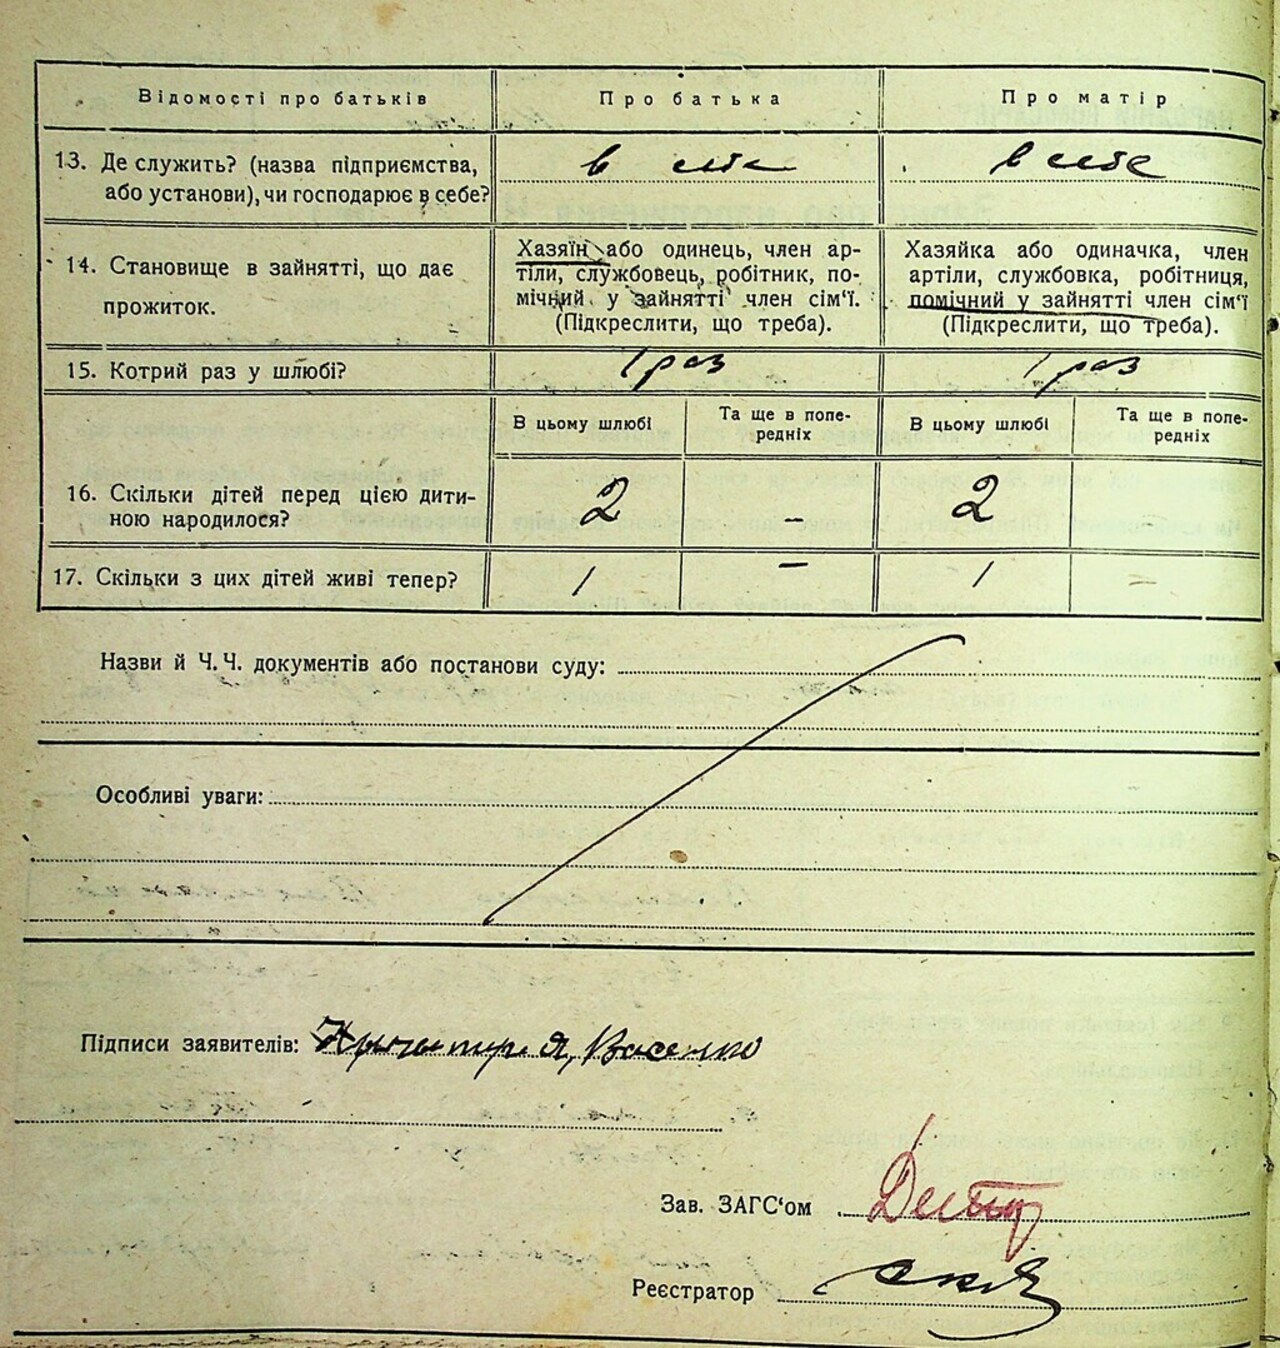 Відомості про батьків
Про батька
Про матір
13. Де служить? (назва підприємства, або установи), чи господарює в себе?
в себе
в себе
14. Становище в зайнятті, що дає прожиток.
Хазяїн або одинець, член ар-
тіли, службовець, робітник, по-
мічний у зайнятті член сім'ї.
(Підкреслити, що треба).
Хазяйка або одиначка, член
артіли, службовка, робітниця,
помічний у зайнятті член сім'ї
(Підкреслити, що треба).
15. Котрий раз у шлюбі?
1 раз
1 раз
В цьому шлюбі
Та ще в попе-
редніх
В цьому шлюбі
Та ще в попе-
редніх
16. Скільки дітей перед цією дити-
ною народилося?
2
–
2
17. Скільки з цих дітей живі тепер?
1
–
1
–
Назви й Ч. Ч. документів або постанови суду:
Особливі уваги:
Підписи заявителів:
Зав. ЗАГС'ом
Реєстратор